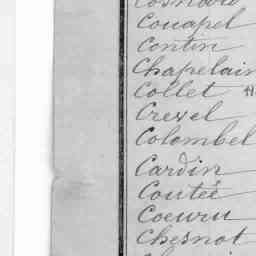 Couapel
Contin
Chapelain
Collet
Crexel
Colombel
Cardin
Coutée
Coeuru
Chesnot